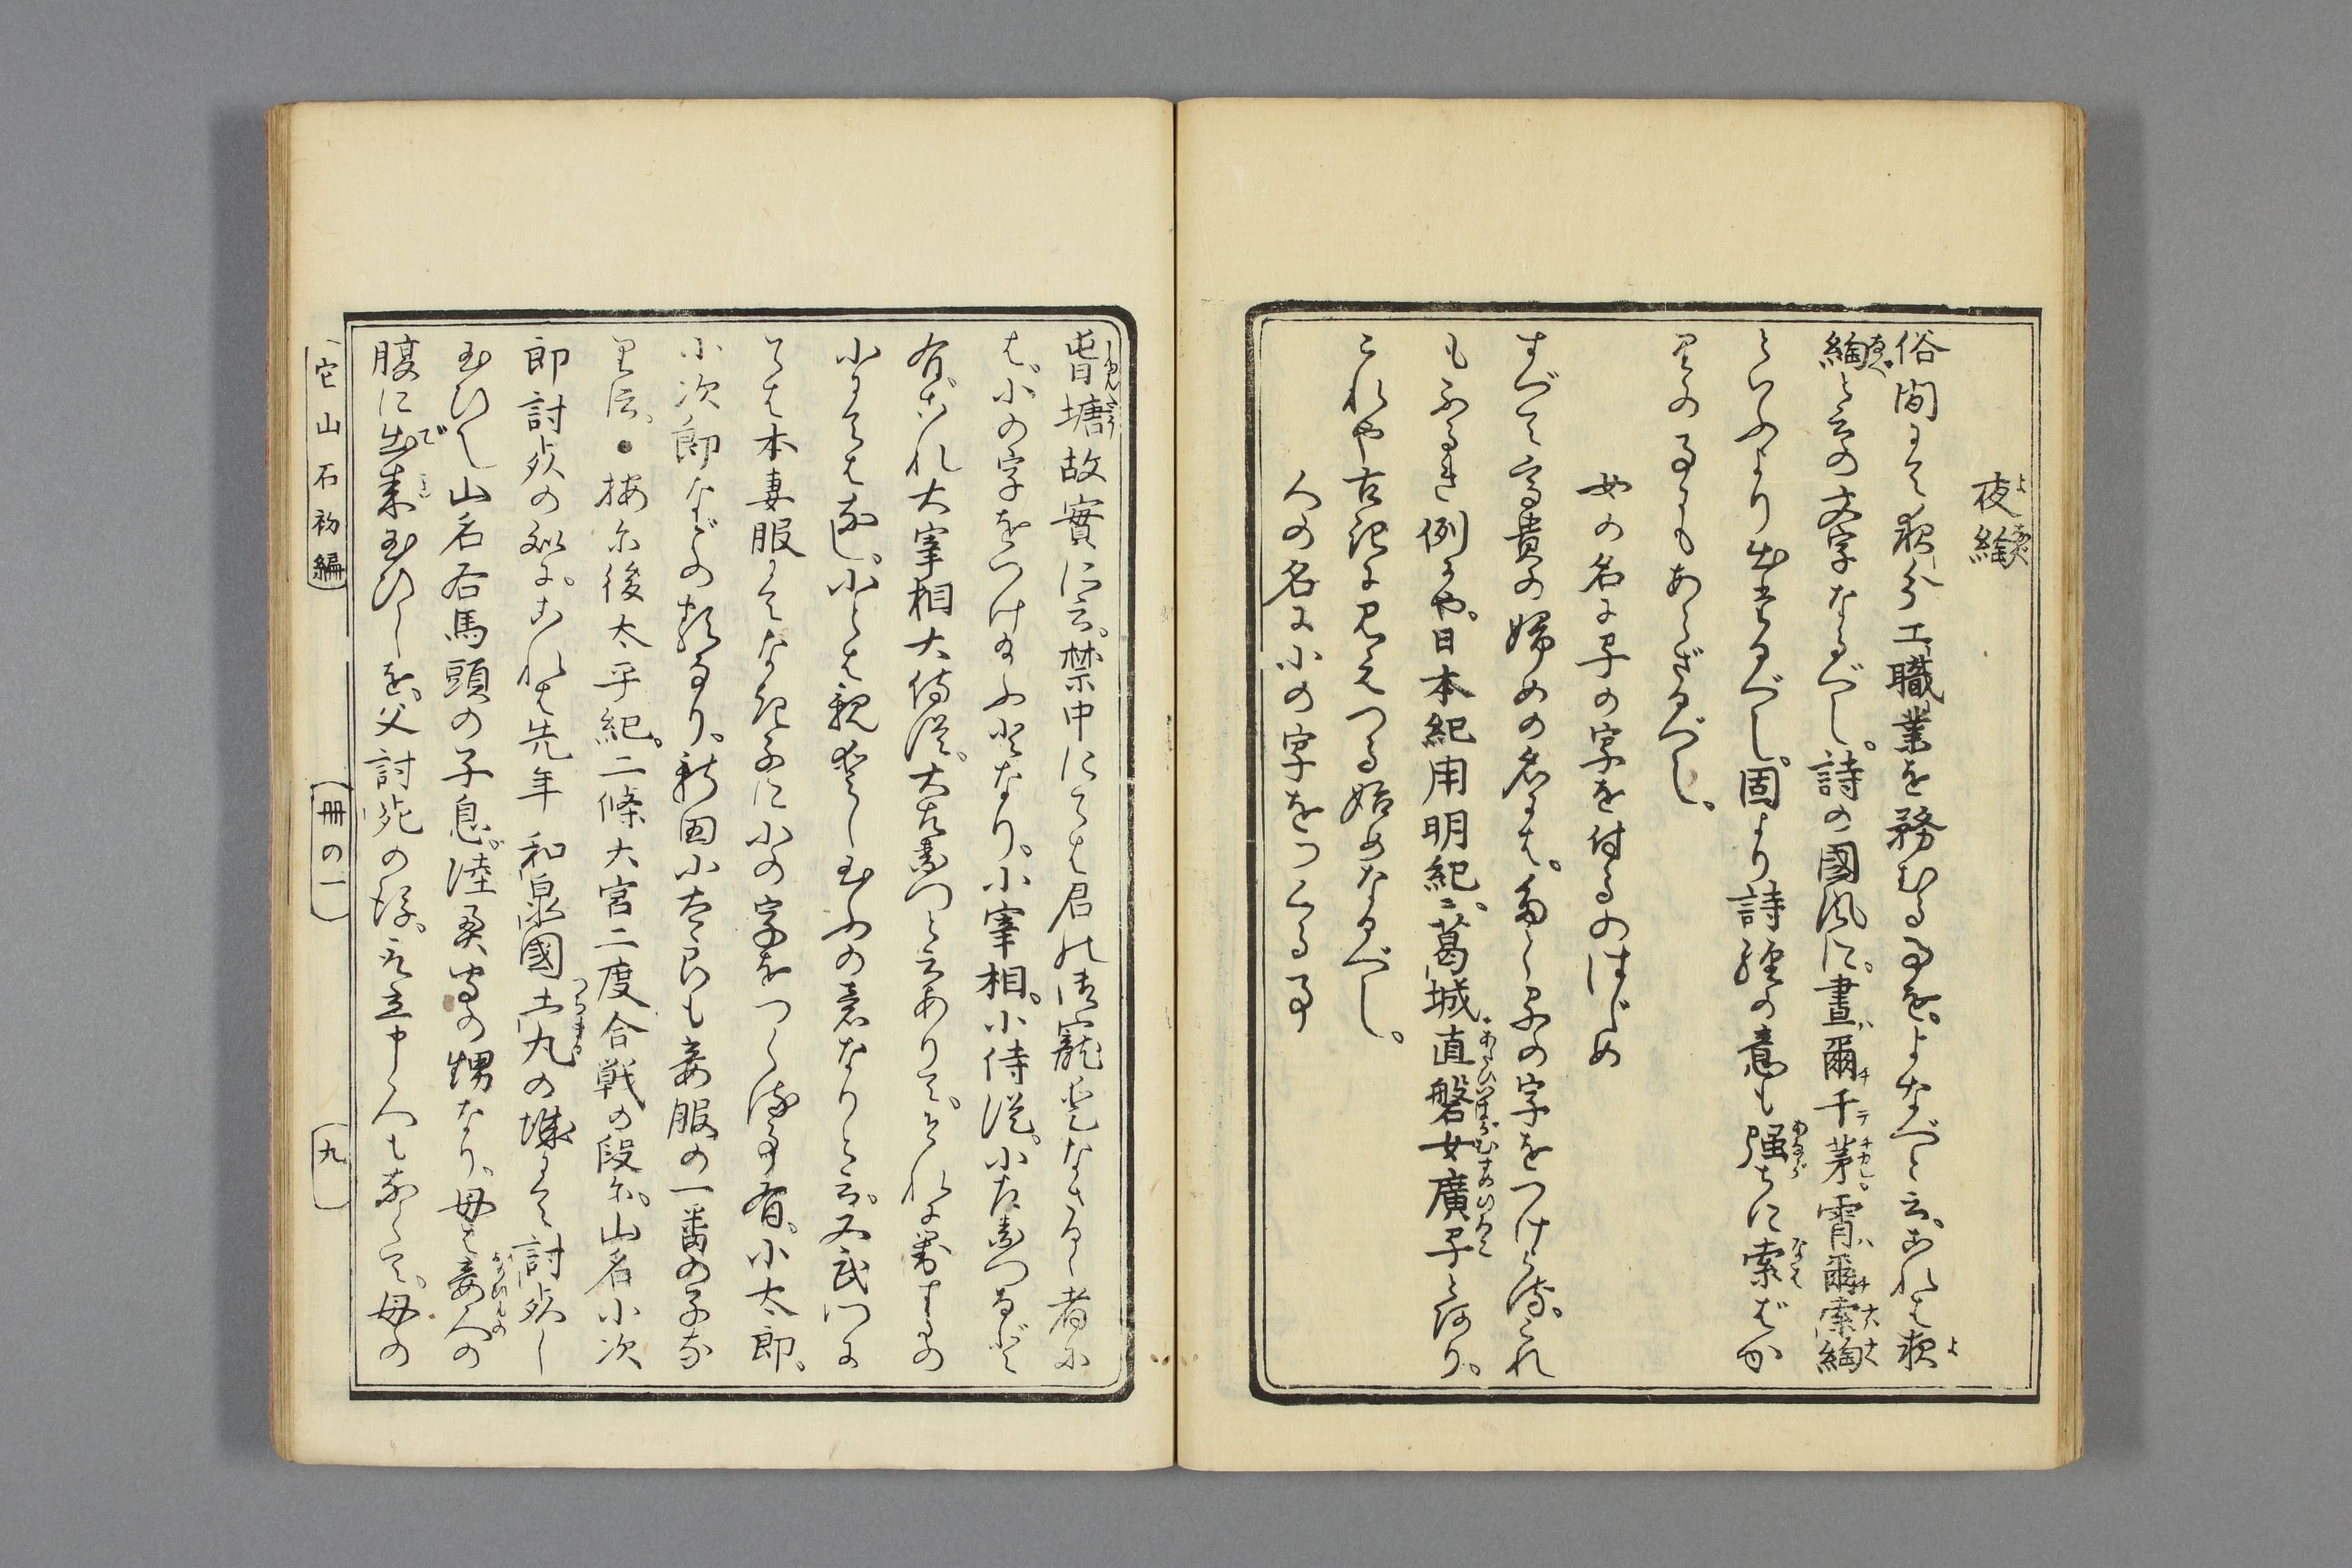 夜綯
俗間にて夜分工職業を務むる事を。よなべと云。これは夜
綯と云の文字なるべし。詩の國風に。晝爾于茅霄爾索綯
といふより出たるべし。固より詩經の意も強ちに索ばか
りの事にもあらざるべし。
女の名に子の字を付るのはじめ
すべて高貴の婦女の名には。多く子の字をつけらる。これ
もふるき例にや。日本紀用明紀に。葛城直磐女廣子と何り。
これや古記に見えつる始めなるべし。
人の名に小の字をつくる事
昔塘故實に云。禁中にては君の御寵愛なさるゝ者に
は。小の字をつけ給ふ事なり。小宰相。小侍従。小左衛門など
有。これ大宰相大侍従。大左衛門と云ありて。それに對するの
小にては無し。小とは親愛し玉ふの意なりと云。又武門に
ては本妻服にてなき子に小の字をつくる事有。小太郎。
小次郎などの類なり。新田小太良も妾服の一番の子な
り云。●按に後太平紀。二條大宮二度合戦の段に。山名小次
郎討死の処に。これは先年和泉國土丸の城にて討死し
玉ひし山名右馬頭の子息。陸奥守の甥なり。母は妾人の
腹に出来玉ひしを。父討死の後。取立申人も無くて。母の
它山石初編
冊の一
九